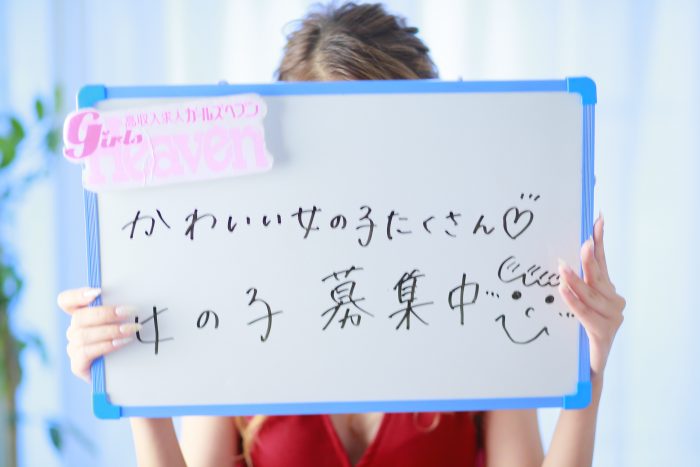 高収入求人ガールズヘブン
Girls
Heaven
かわいい女の子たくさん♡
女の子 募集中